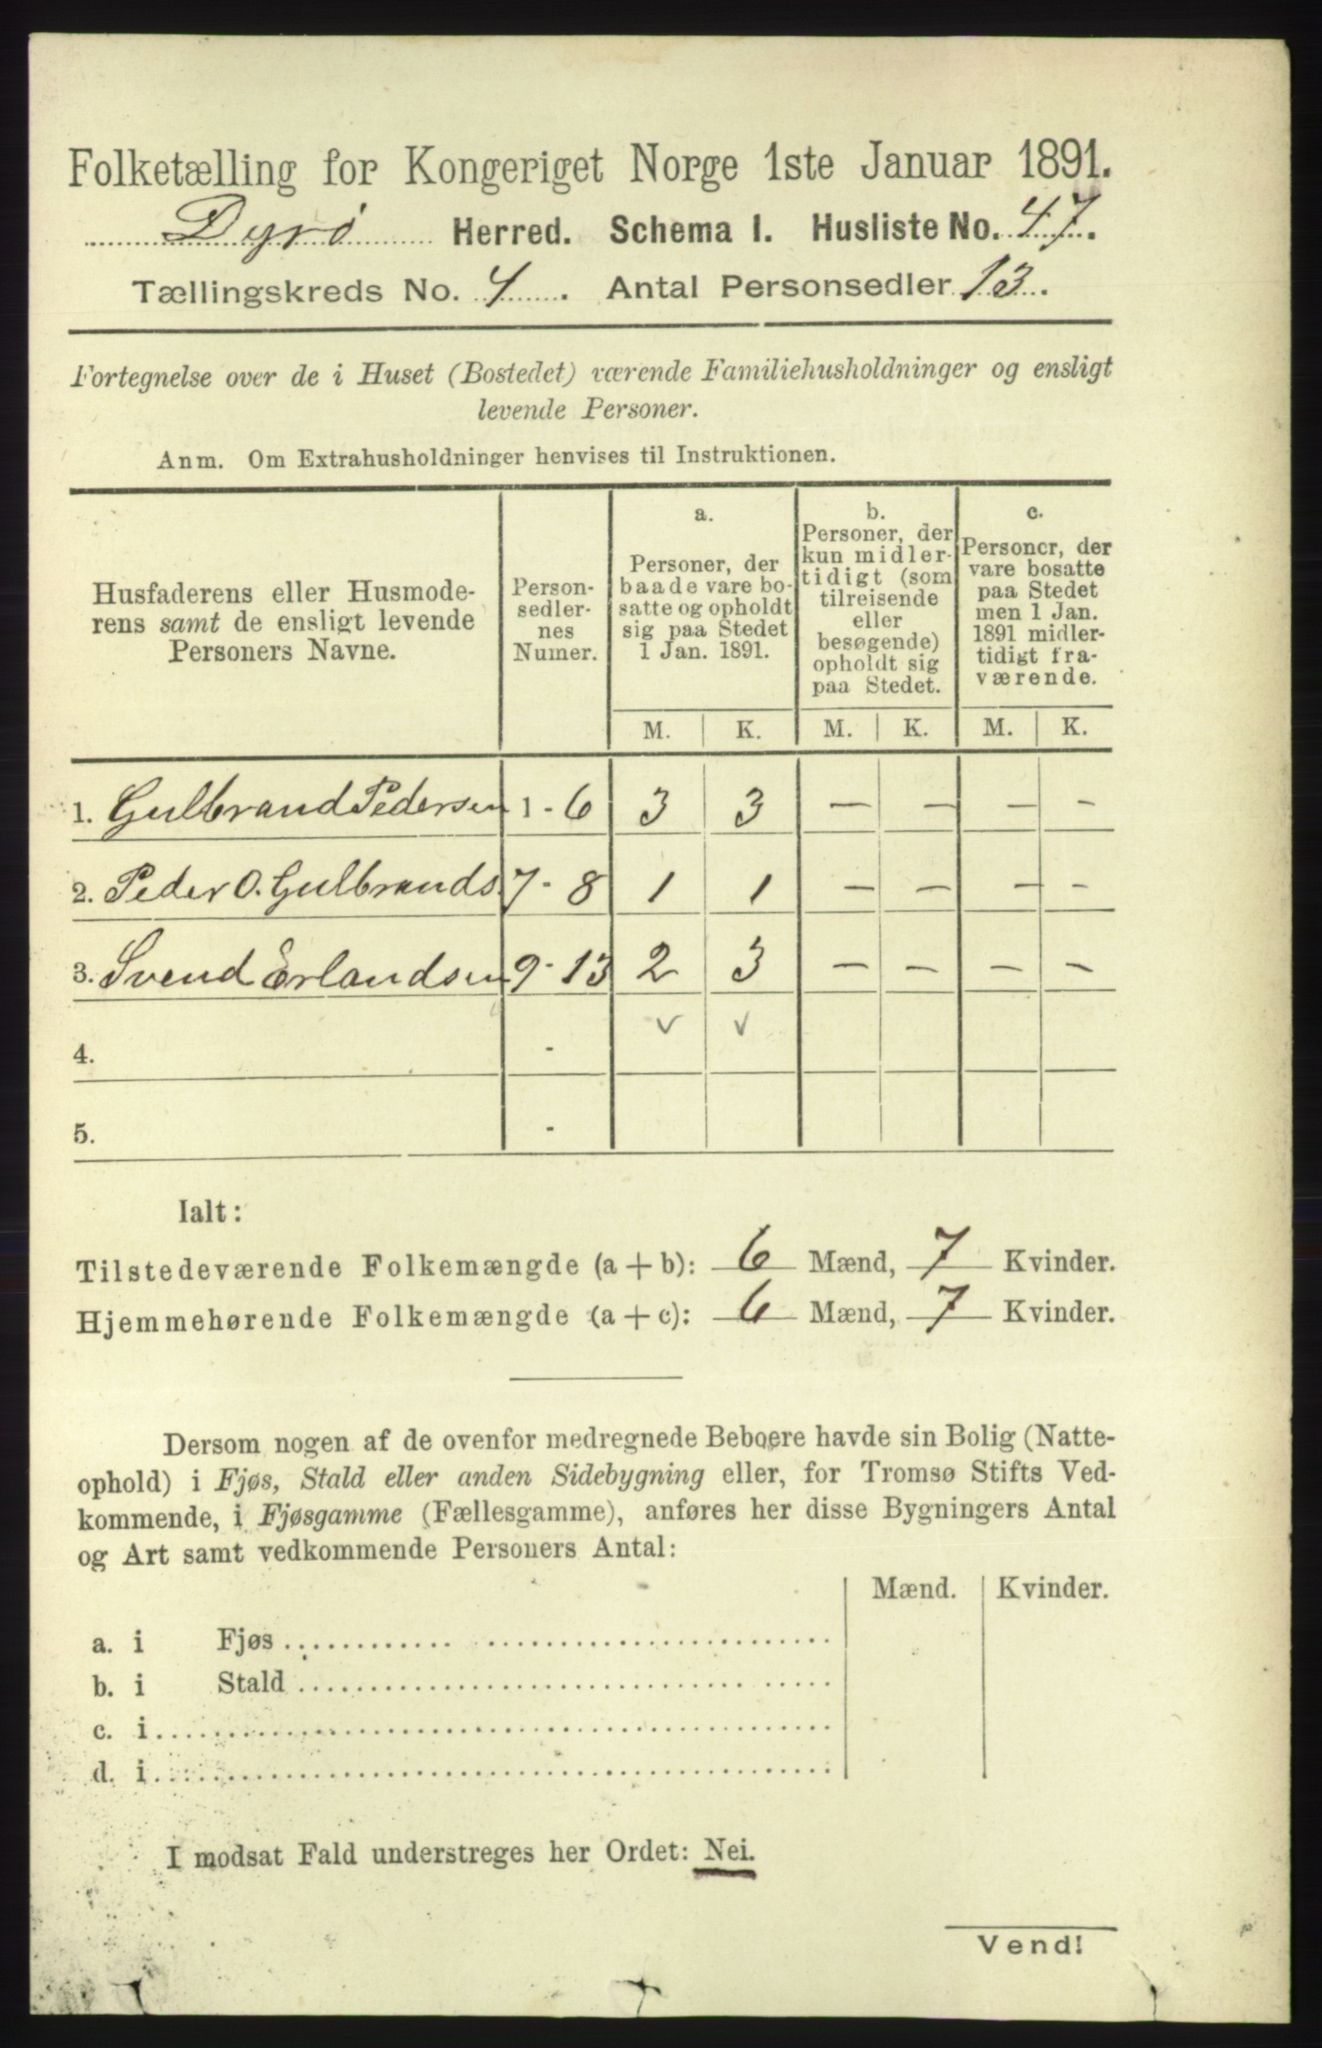 Folketælling for Kongeriget Norge 1ste Januar 1891.
Dyrø Herred. Schema I. Husliste No. 47.
Tællingskreds No. 4. Antal Personsedler 13.
Fortegnelse over de i Huset (Bostedet) værende Familiehusholdninger og ensligt
levende Personer.
Anm. Om Extrahusholdninger henvises til Instruktionen.
Husfaderens eller Husmode-
rens samt de ensligt levende
Personers Navne.
Person-
sedler-
nes
Numer.
a.
Personer, der
baade vare bo-
satte og opholdt
sig paa Stedet
1 Jan. 1891.
b.
Personer, der
kun midler-
tidigt (som
tilreisende
eller
besøgende)
opholdt sig
paa Stedet.
c.
Personer, der
vare bosatte
paa Stedet
men 1 Jan.
1891 midler-
tidigt fra-
værende.
M. K. M. K. M. K.
1. Gulbrand Pedersen 1 - 6 3 3 — — — —
2. Peder O. Gulbrands. 7 - 8 1 1 — — — —
3. Svend Erlandsen 9 - 13 2 3 — — — —
4. - v v
5. -
Ialt:
Tilstedeværende Folkemængde (a + b): 6 Mænd, 7 Kvinder.
Hjemmehørende Folkemængde (a + c): 6 Mænd, 7 Kvinder.
Dersom nogen af de ovenfor medregnede Beboere havde sin Bolig (Natte-
ophold) i Fjøs, Stald eller anden Sidebygning eller, for Tromsø Stifts Ved-
kommende, i Fjøsgamme (Fællesgamme), anføres her disse Bygningers Antal
og Art samt vedkommende Personers Antal:
Mænd. Kvinder.
a. i Fjøs
b. i Stald
c. i
d. i
I modsat Fald understreges her Ordet: Nei.
Vend!